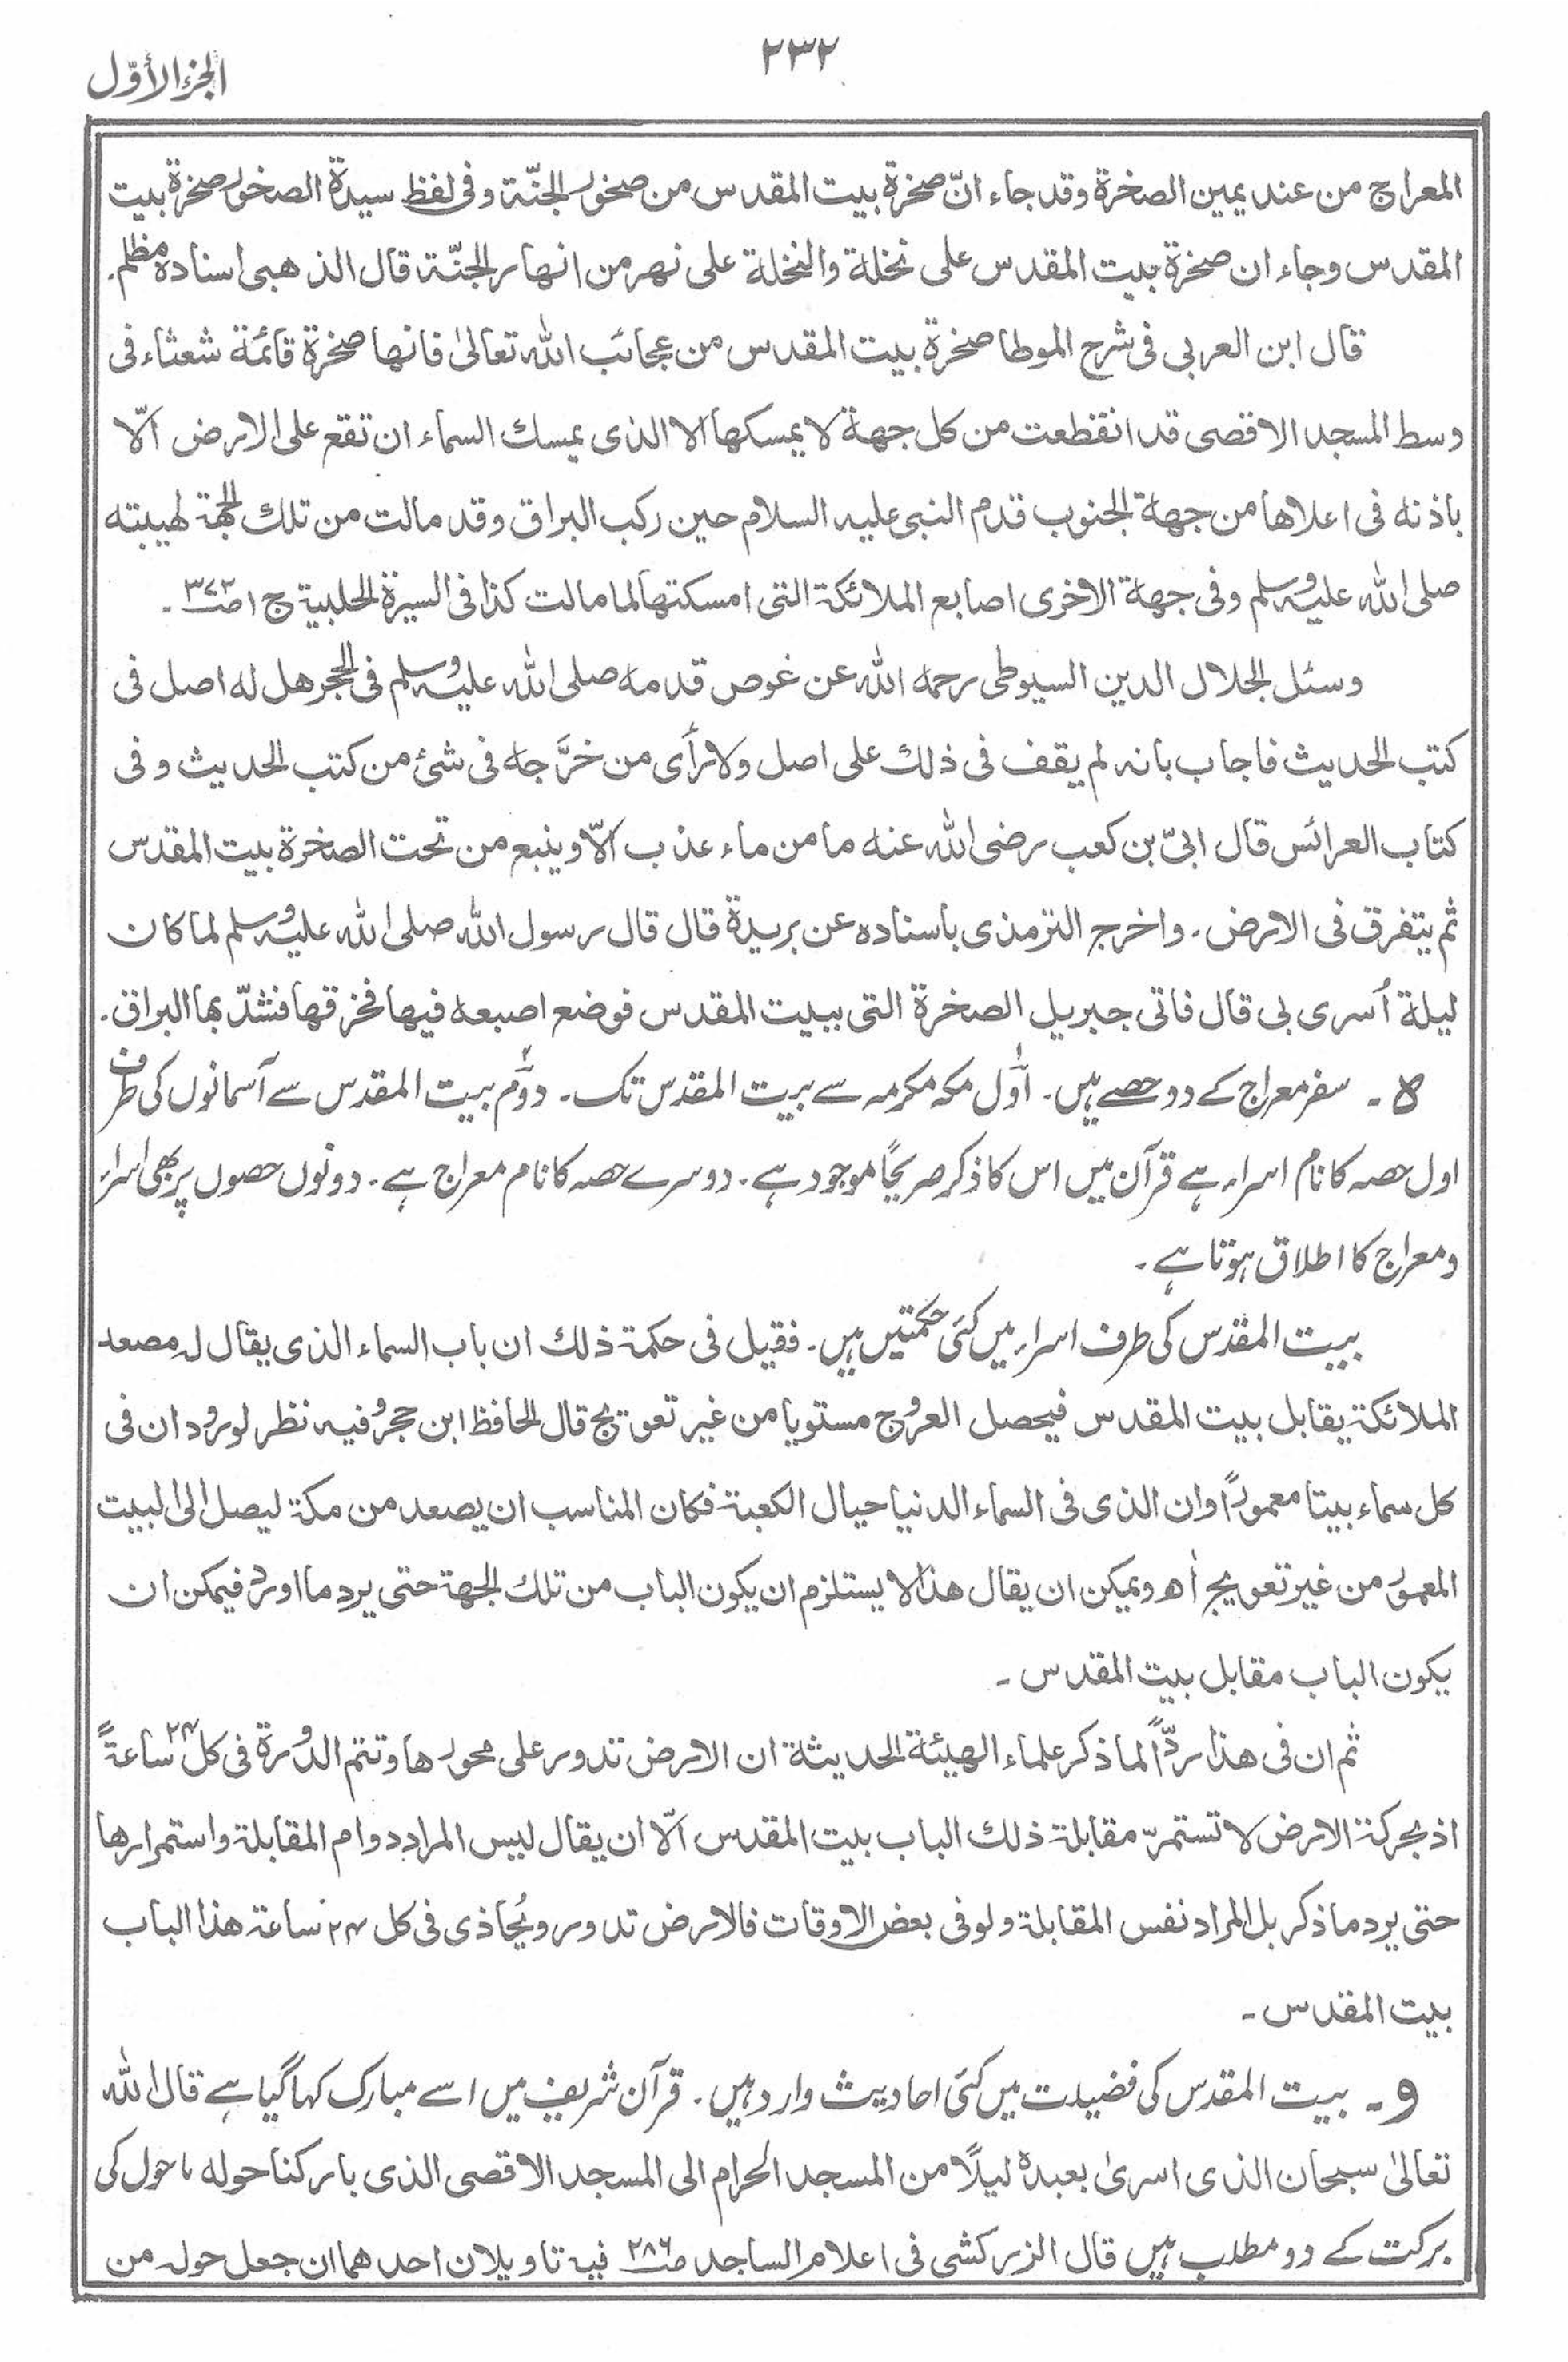 ۲۳۲
الجزء الأوّل
المعراج من عند يمين الصخرة وقد جاء انّ صخرة بيت المقدس من صخور الجنّة وفى لفظ سيدة الصخور صخرة بيت
المقدس وجاء ان صخرة بيت المقدس على نخلة والنخلة على نهر من انهار الجنّة قال الذهبى اسناده مظلم.
قال ابن العربى فى شرح الموطا صخرة بيت المقدس من عجائب الله تعالىٰ فانها صخرة قائمة شعثاء فى
وسط المسجد الاقصى قد انقطعت من كل جهة لا يمسكها الا الذى يمسك السماء ان تقع على الارض الّا
باذنه فى اعلاها من جهة الجنوب قدم النبى عليه السلام حين ركب البراق وقد مالت من تلك الجهة لهيبته
صلى الله عليه وسلم وفى جهة الاخرى اصابع الملائكة التى امسكتها لما مالت كذا فى السيرة الحلبية ج ۱ ص۳۷۲۔
وسئل الجلال الدين السيوطى رحمه الله عن غوص قدمه صلى الله عليه وسلم فى الحجر هل له اصل فى
كتب الحديث فاجاب بانه لم يقف فى ذلك على اصل ولا رأى من خرَّجه فى شئ من كتب الحديث وفى
كتاب العرائس قال ابىّ بن كعب رضى الله عنه ما من ماء عذب الّا وينبع من تحت الصخرة بيت المقدس
ثم يتفرق فى الارض. واخرج الترمذى باسناده عن بريدة قال قال رسول الله صلى الله عليه وسلم لما كان
ليلة اُسرى بى قال فاتى جبريل الصخرة التى ببيت المقدس فوضع اصبعه فيها فخرقها فشدّ بها البراق.
ہ ۔ سفر معراج کے دو حصے ہیں۔ اوّل مکہ مکرمہ سے بیت المقدس تک۔ دوّم بیت المقدس سے آسمانوں کی طرف
اول حصہ کا نام اسراء ہے قرآن میں اس کا ذکر صریحًا موجود ہے۔ دوسرے حصہ کا نام معراج ہے۔ دونوں حصوں پر بھی اسراء
و معراج کا اطلاق ہوتا ہے۔
بیت المقدس کی طرف اسراء میں کئی حکمتیں ہیں۔ فقيل فى حكمة ذلك ان باب السماء الذى يقال له مصعد
الملائكة يقابل بيت المقدس فيحصل العروج مستويا من غير تعويج قال الحافظ ابن حجرؒ وفيه نظر لورود ان فى
كل سماء بيتا معمورًا وان الذى فى السماء الدنيا حيال الكعبة فكان المناسب ان يصعد من مكة ليصل الى البيت
المعمور من غير تعويج اھ ويمكن ان يقال هذا لا يستلزم ان يكون الباب من تلك الجهة حتى يرد ما اورد فيمكن ان
يكون الباب مقابل بيت المقدس ۔
ثم ان فى هذا ردًّا لما ذكر علماء الهيئة الحديثة ان الارض تدور على محورها وتتم الدورة فى كل ۲۴ ساعةً
اذ بحركة الارض لا تستمرّ مقابلة ذلك الباب بيت المقدس الّا ان يقال ليس المراد دوام المقابلة واستمرارها
حتى يرد ما ذكر بل المراد نفس المقابلة ولو فى بعض الاوقات فالارض تدور ويُحاذى فى كل ۲۴ ساعة هذا الباب
بيت المقدس ۔
و ۔ بیت المقدس کی فضیلت میں کئی احادیث وارد ہیں۔ قرآن شریف میں اسے مبارک کہا گیا ہے قال الله
تعالىٰ سبحان الذى اسرىٰ بعبده ليلًا من المسجد الحرام الى المسجد الاقصى الذى باركنا حوله ماحول کی
برکت کے دو مطلب ہیں قال الزركشى فى اعلام الساجد ص۲۸۶ فيه تاويلان احدهما ان جعل حوله من